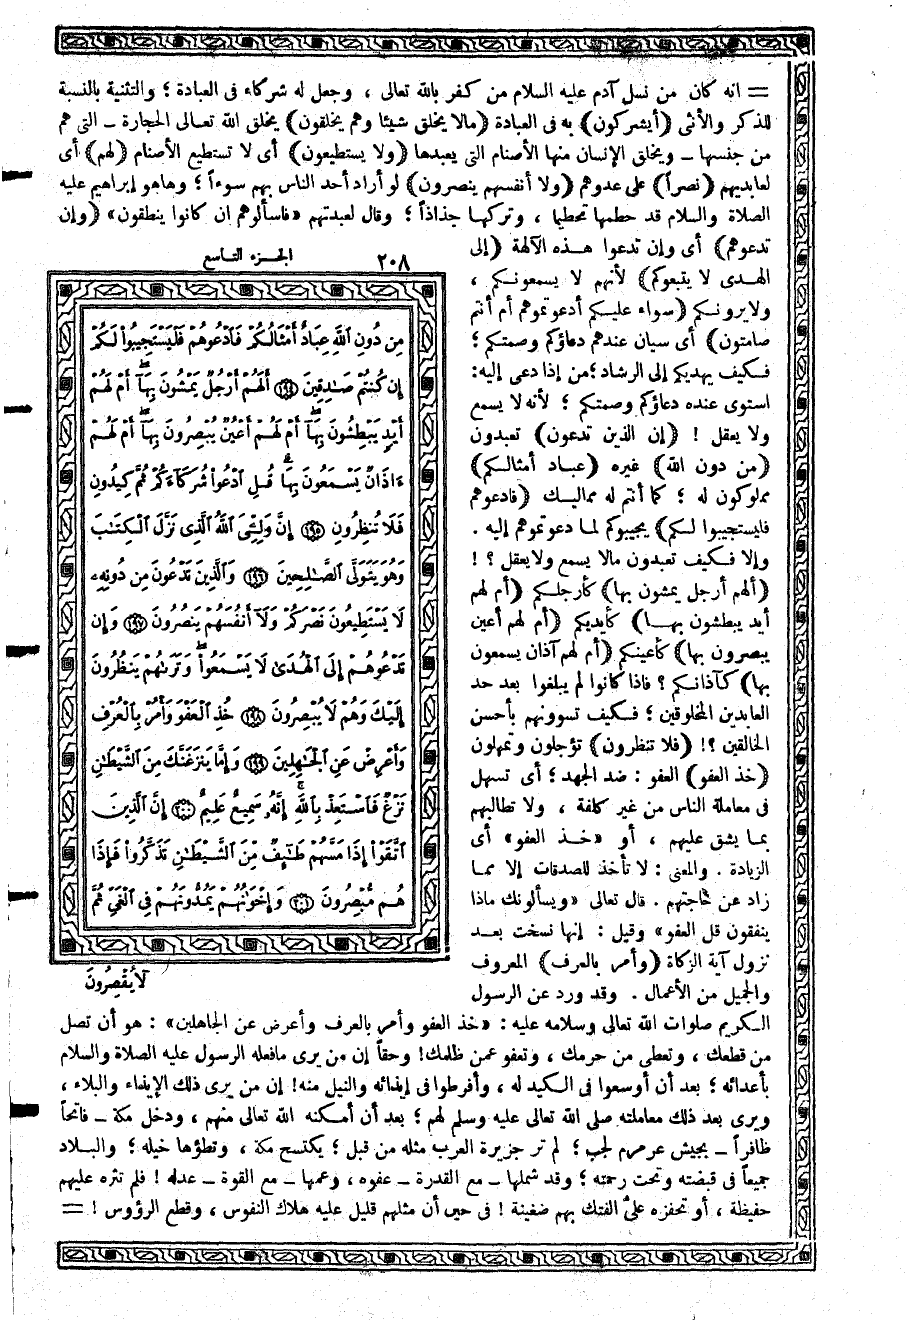 = انه كان من نسل آدم عليه السلام من كفر بالله تعالى ، وجعل له شركاء فى العبادة ؛ والتثنية بالنسبة
للذكر والأنثى (أيشركون) به فى العبادة (مالا يخلق شيئا وهم يخلقون) يخلق الله تعالى الحجارة ــ التى هم
من جنسها ــ ويخلق الإنسان منها الأصنام التى يعبدها (ولا يستطيعون) أى لا تستطيع الأصنام (لهم) أى
لعابديهم (نصراً) على عدوهم (ولا أنفسهم ينصرون) لو أراد أحد الناس بهم سوءاً ؛ وهاهو إبراهيم عليه
الصلاة والسلام قد حطمها تحطيما ، وتركها جذاذاً ؛ وقال لعبدتهم «فاسألوهم ان كانوا ينطقون» (وإن
تدعوهم) أى وإن تدعوا هذه الآلهة (إلى
الهدى لا يتبعوكم) لأنهم لا يسمعونكم ،
ولا يرونكم (سواء عليكم أدعوتموهم أم أنتم
صامتون) أى سيان عندهم دعاؤكم وصمتكم ؛
فكيف يهديكم إلى الرشاد ؛ من إذا دعى إليه:
استوى عنده دعاؤكم وصمتكم ؛ لأنه لا يسمع
ولا يعقل ! (إن الذين تدعون) تعبدون
(من دون الله) غيره (عباد أمثالكم)
مملوكون له ؛ كما أنتم له مماليك (فادعوهم
فليستجيبوا لكم) يجيبوكم لما دعوتموهم إليه .
وإلا فكيف تعبدون مالا يسمع ولا يعقل ؟ !
(ألهم أرجل يمشون بها) كأرجلكم (أم لهم
أيد يبطشون بها) كأيديكم (أم لهم أعين
يبصرون بها) كأعينكم (أم لهم آذان يسمعون
بها) كآذانكم ؟ فاذا كانوا لم يبلغوا بعد حد
العابدين المخلوقين ؛ فكيف تسوونهم بأحسن
الخالقين ؟! (فلا تنظرون) تؤجلون وتمهلون
(خذ العفو) العفو : ضد الجهد ؛ أى تسهل
فى معاملة الناس من غير كلفة ، ولا تطالبهم
بما يشق عليهم ، أو «خذ العفو» أى
الزيادة . والمعنى : لا تأخذ للصدقات إلا مما
زاد عن حاجتهم . قال تعالى «ويسألونك ماذا
ينفقون قل العفو» وقيل : إنها نسخت بعد
نزول آية الزكاة (وأمر بالعرف) المعروف
والجميل من الأعمال . وقد ورد عن الرسول
الجزء التاسع ٢٠٨
مِن دُونِ ٱللَّهِ عِبَادٌ أَمْثَالُكُمْ فَٱدْعُوهُمْ فَلْيَسْتَجِيبُوا۟ لَكُمْ
إِن كُنتُمْ صَـٰدِقِينَ ﴿١٩٤﴾ أَلَهُمْ أَرْجُلٌ يَمْشُونَ بِهَآ أَمْ لَهُمْ
أَيْدٍ يَبْطِشُونَ بِهَآ أَمْ لَهُمْ أَعْيُنٌ يُبْصِرُونَ بِهَآ أَمْ لَهُمْ
ءَاذَانٌ يَسْمَعُونَ بِهَا قُلِ ٱدْعُوا۟ شُرَكَآءَكُمْ ثُمَّ كِيدُونِ
فَلَا تُنظِرُونِ ﴿١٩٥﴾ إِنَّ وَلِـِّۧىَ ٱللَّهُ ٱلَّذِى نَزَّلَ ٱلْكِتَـٰبَ
وَهُوَ يَتَوَلَّى ٱلصَّـٰلِحِينَ ﴿١٩٦﴾ وَٱلَّذِينَ تَدْعُونَ مِن دُونِهِۦ
لَا يَسْتَطِيعُونَ نَصْرَكُمْ وَلَآ أَنفُسَهُمْ يَنصُرُونَ ﴿١٩٧﴾ وَإِن
تَدْعُوهُمْ إِلَى ٱلْهُدَىٰ لَا يَسْمَعُوا۟ وَتَرَىٰهُمْ يَنظُرُونَ
إِلَيْكَ وَهُمْ لَا يُبْصِرُونَ ﴿١٩٨﴾ خُذِ ٱلْعَفْوَ وَأْمُرْ بِٱلْعُرْفِ
وَأَعْرِضْ عَنِ ٱلْجَـٰهِلِينَ ﴿١٩٩﴾ وَإِمَّا يَنزَغَنَّكَ مِنَ ٱلشَّيْطَـٰنِ
نَزْغٌ فَٱسْتَعِذْ بِٱللَّهِ إِنَّهُۥ سَمِيعٌ عَلِيمٌ ﴿٢٠٠﴾ إِنَّ ٱلَّذِينَ
ٱتَّقَوْا۟ إِذَا مَسَّهُمْ طَـٰٓئِفٌ مِّنَ ٱلشَّيْطَـٰنِ تَذَكَّرُوا۟ فَإِذَا
هُم مُّبْصِرُونَ ﴿٢٠١﴾ وَإِخْوَٰنُهُمْ يَمُدُّونَهُمْ فِى ٱلْغَىِّ ثُمَّ
لَا يُقْصِرُونَ
الكريم صلوات الله تعالى وسلامه عليه : «خذ العفو وأمر بالعرف وأعرض عن الجاهلين» : هو أن تصل
من قطعك ، وتعطى من حرمك ، وتعفو عمن ظلمك! وحقاً إن من يرى مافعله الرسول عليه الصلاة والسلام
بأعدائه ؛ بعد أن أوسعوا فى الكيد له ، وأفرطوا فى إيذائه والنيل منه! إن من يرى ذلك الإيذاء والبلاء ،
ويرى بعد ذلك معاملته صلى الله تعالى عليه وسلم لهم ؛ بعد أن أمكنه الله تعالى منهم ، ودخل مكة ــ فاتحاً
ظافراً ــ بجيش عرمرم لجب ؛ لم تر جزيرة العرب مثله من قبل ؛ يكتسح مكة ، وتطؤها خيله ؛ والبلاد
جميعاً فى قبضته وتحت رحمته ؛ وقد شملها ــ مع القدرة ــ عفوه ، وعمها ــ مع القوة ــ عدله ! فلم تثره عليهم
حفيظة ، أو تحفزه على الفتك بهم ضغينة ! فى حين أن مثلهم قليل عليه هلاك النفوس ، وقطع الرؤوس ! =